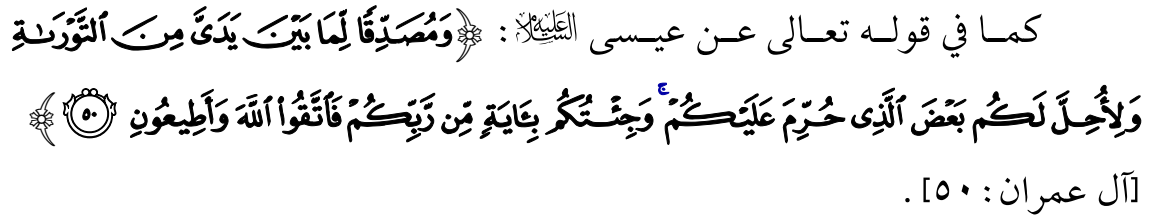 كمـا في قولـه تعـالى عـن عيـسى عليه السلام : ﴿وَمُصَدِّقًا لِّمَا بَيْنَ يَدَيَّ مِنَ ٱلتَّوْرَىٰةِ
وَلِأُحِلَّ لَكُم بَعْضَ ٱلَّذِى حُرِّمَ عَلَيْكُمْ ۚ وَجِئْتُكُم بِـَٔايَةٍ مِّن رَّبِّكُمْ فَٱتَّقُوا۟ ٱللَّهَ وَأَطِيعُونِ ۝٥٠﴾
[آل عمران: ٥٠] .